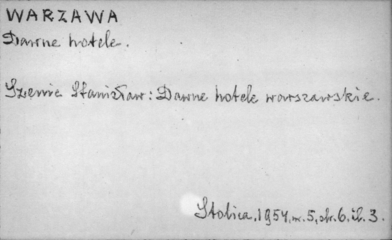 WARZAWA
Dawne hotele.
Szenic Stanisław: Dawne hotele warszawskie.
Stolica, 1957, nr. 5, str. 6, il. 3.